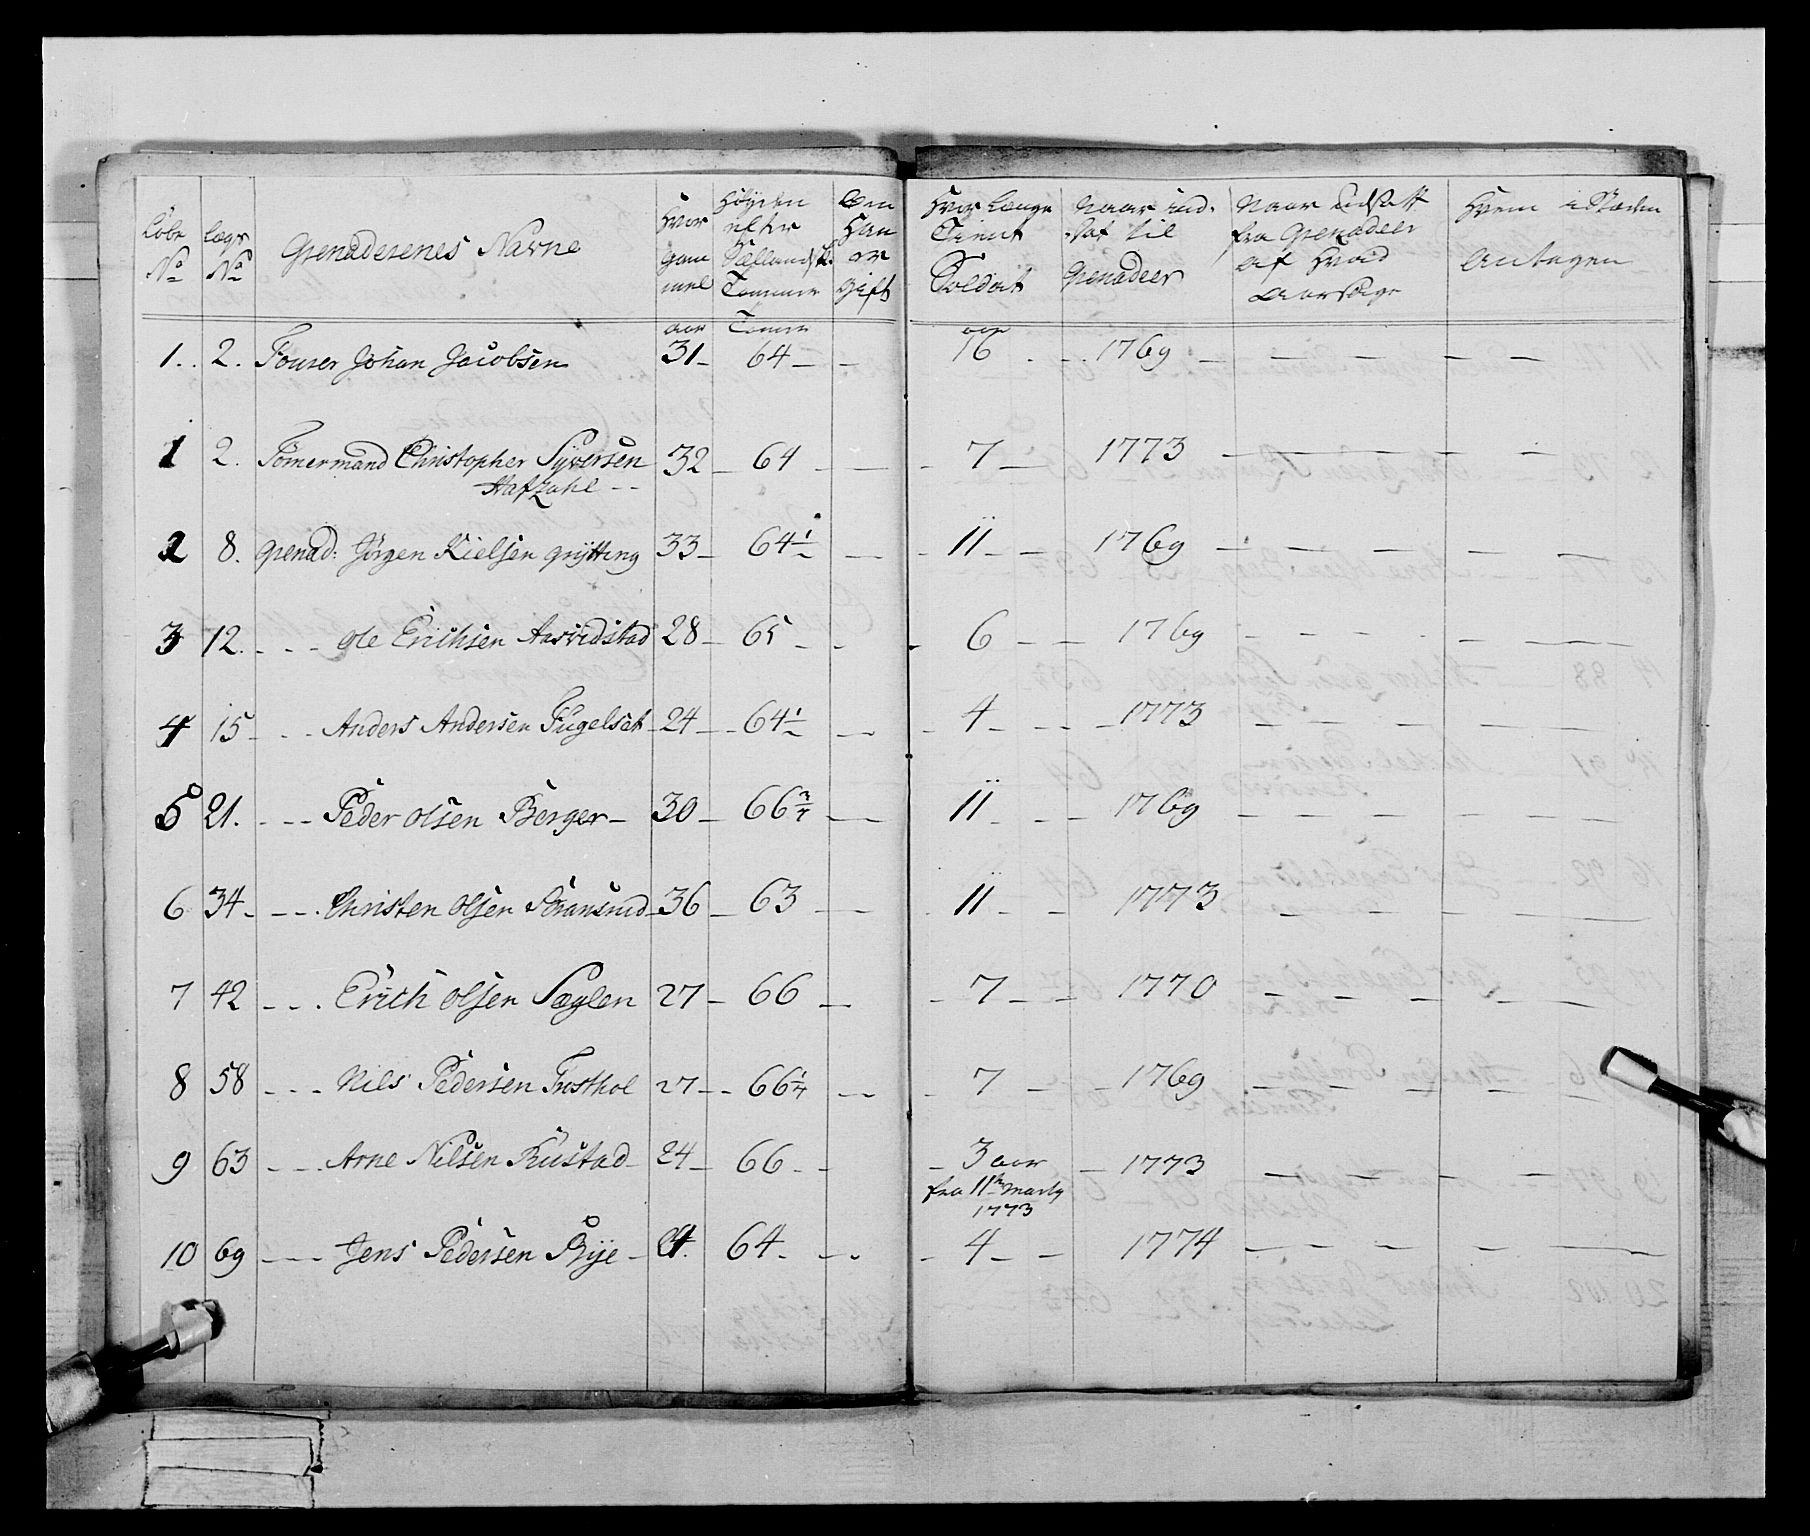 Løbe No
Lægs No
Grenaderenes Navne
Hvor gammel
Høyden efter Siellandske Tommer
Om Han er Gift
Hvor Længe Tient Soldat
Naar indsat til Grenadeer
Naar Udsatt fra Grenadeer af Hvad Aarsage
Hvem i Stæden Antagen
aar Tomer aar
1. 2. Fourer Johan Jacobsen 31 - 64 - - 16 - 1769 - - - - -
1 2. Tømermand Christopher Syversen 32 - 64 - - 7 - 1773 - - - - -
Hafzahl - -
2 8. Grenad: Jørgen Kielsen Grytting 33 - 64 1/2 - - 11 - - 1769 - - - - -
3 12. - - - Ole Erichsen Aasvidstad 28 - 65 - - - 6 - - 1769 - - - - -
4 15 - - - Anders Andersen Fugelset - 24 - - 64 1/2 - - 4 - - - 1773 - - - - -
5 21. - - - Peder Olsen Berger - 30 - 66 3/4 - - 11 - - - 1769 - - - - -
6 34 - - - Christen Olsen Skransrud - 36 - 63 - - - 11 - - 1773 - - - - -
7 42 - - - Erich Olsen Sæglen 27 - 66 - - 7 - - 1770 - - - - -
8 58 - - - Nils Pedersen Frosthol 27 - - 66 1/4 - - 7 - - 1769 - - - - -
9 63 - - - Arne Nilsen Rustad - 24 - 66 - - - 3 aar - 1773 - - - - -
fra 11te Marty
1773
10 69 - - - Jens Pedersen Rye - 24. 64 - - - - 4 - - 1774 - - - - -